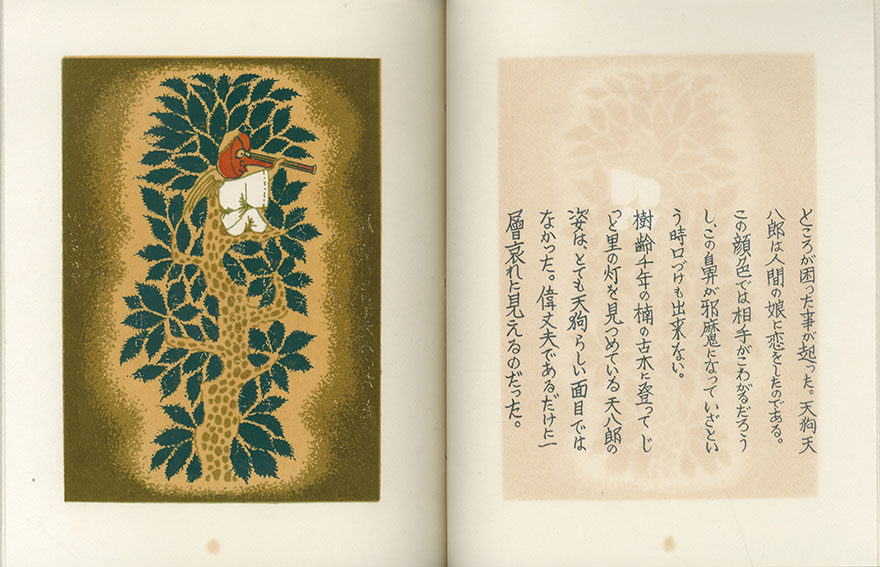 ところが困った事が起った。天狗天
八郎は人間の娘に恋をしたのである。
この顔色では相手がこわがるだろう
し、この鼻が邪魔になっていざとい
う時口づけも出来ない。
樹齢千年の楠の古木に登ってじ
っと里の灯を見つめている天八郎の
姿は、とても天狗らしい面目では
なかった。偉丈夫であるだけに一
層哀れに見えるのだった。